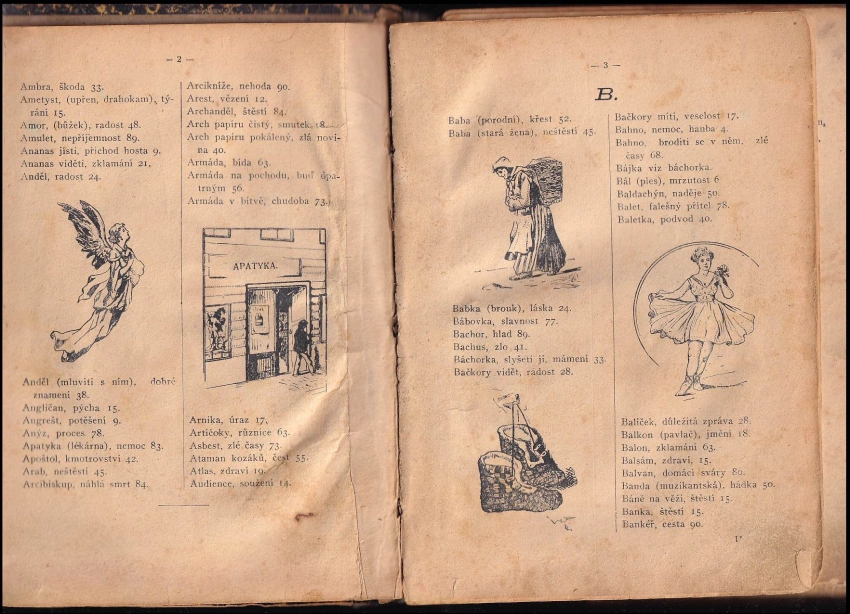 — 2 —
Ambra, škoda 33.
Ametyst, (upřen, drahokam), tý-
rání 15.
Amor, (bůžek), radost 48.
Amulet, nepříjemnost 89.
Ananas jísti, příchod hosta 9.
Ananas viděti, zklamání 21.
Anděl, radost 24.
Anděl (mluviti s ním), dobré
znamení 38.
Angličan, pýcha 15.
Angrešt, potěšení 9.
Anýz, proces 78.
Apatyka (lékárna), nemoc 83.
Apoštol, kmotrovství 42.
Arab, neštěstí 45.
Arcibiskup, náhlá smrt 84.
Arcikníže, nehoda 90.
Arest, vězení 12.
Archanděl, štěstí 84.
Arch papíru čistý, smutek 8.
Arch papíru pokálený, zlá novi-
na 40.
Armáda, bída 63.
Armáda na pochodu, buď opa-
trným 56.
Armáda v bitvě, chudoba 73.
APATYKA.
Arnika, úraz 17.
Artičoky, různice 63.
Asbest, zlé časy 73.
Ataman kozáků, čest 55.
Atlas, zdraví 19.
Audience, soužení 14.
— 3 —
B.
Baba (porodní), křest 52.
Baba (stará žena), neštěstí 45.
Babka (brouk), láska 24.
Bábovka, slavnost 77.
Bachor, hlad 89.
Bachus, zlo 41.
Báchorka, slyšeti ji, mámení 33.
Bačkory vidět, radost 28.
Bačkory míti, veselost 17.
Bahno, nemoc, hanba 4.
Bahno, broditi se v něm, zlé
časy 68.
Bájka viz báchorka.
Bál (ples), mrzutost 6
Baldachýn, naděje 50.
Balet, falešný přítel 78.
Baletka, podvod 40.
Balíček, důležitá zpráva 28.
Balkon (pavlač), jmění 18.
Balon, zklamání 63.
Balsám, zdraví, 15.
Balvan, domácí sváry 80.
Banda (muzikantská), hádka 50.
Báně na věži, štěstí 15.
Banka, štěstí 15.
Bankéř, cesta 90.